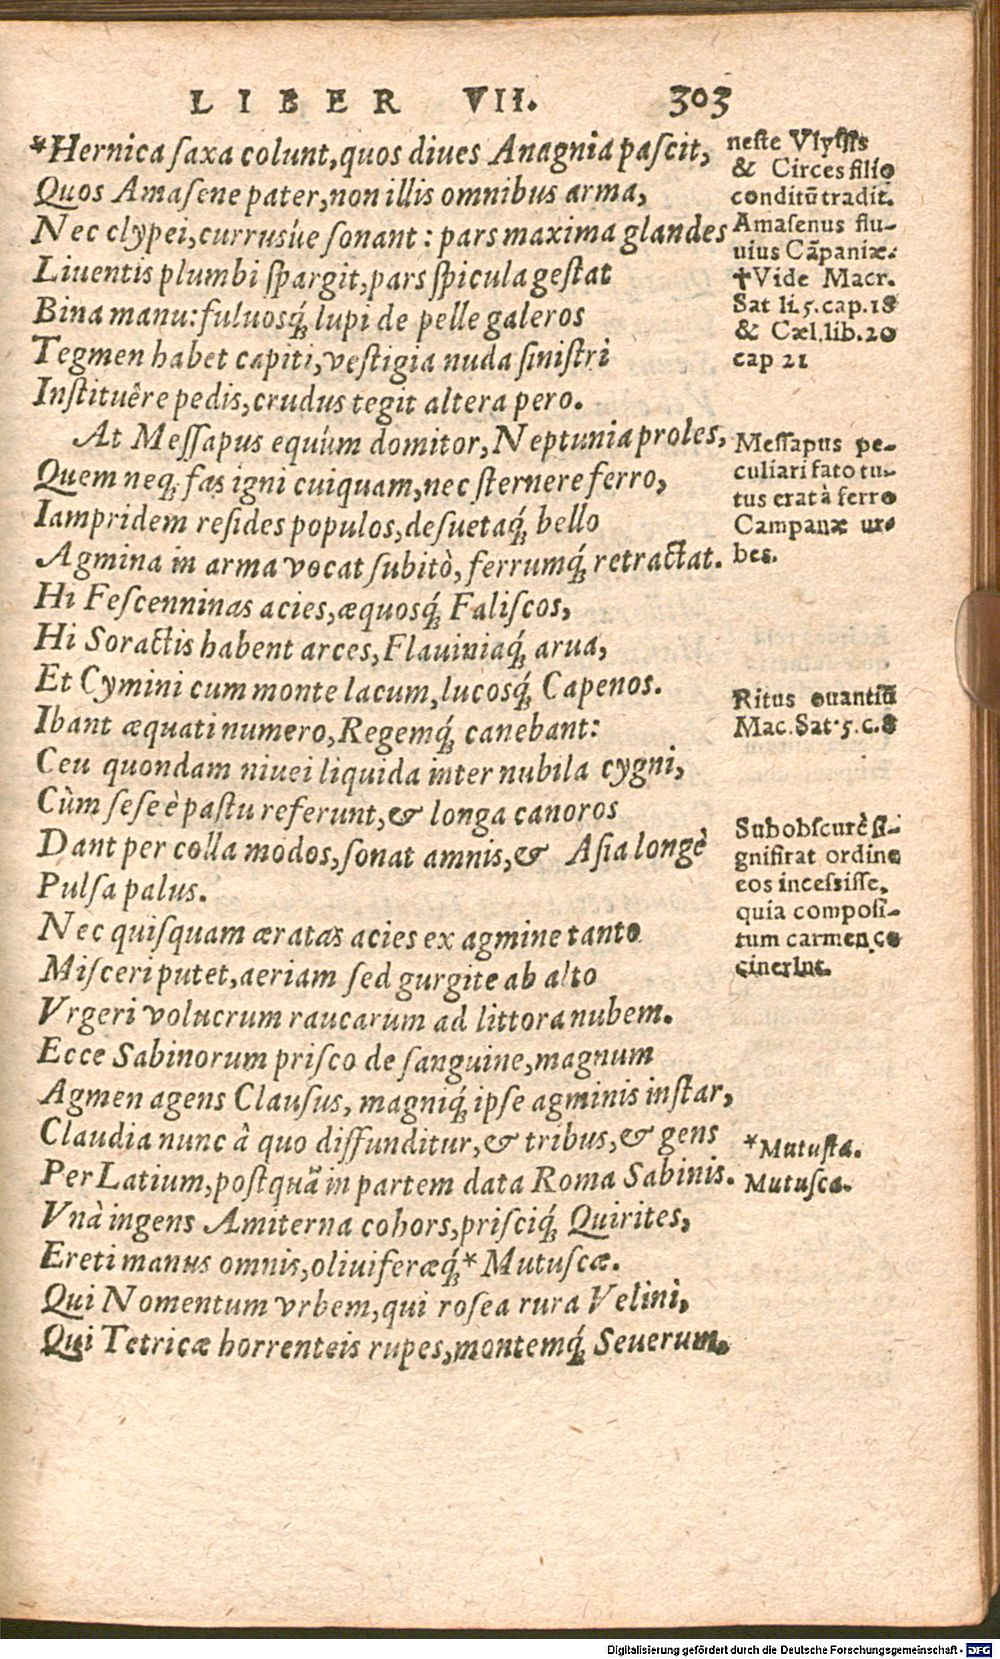 LIBER VII. 303
*Hernica ſaxa colunt, quos diues Anagnia paſcit,
Quos Amaſene pater, non illis omnibus arma,
Nec clypei, currusúe ſonant: pars maxima glandes
Liuentis plumbi ſpargit, pars ſpicula geſtat
Bina manu: fuluosq́; lupi de pelle galeros
Tegmen habet capiti, veſtigia nuda ſiniſtri
Inſtituêre pedis, crudus tegit altera pero.
At Meſſapus equûm domitor, Neptunia proles,
Quem neq; fas igni cuiquam, nec ſternere ferro,
Iampridem reſides populos, deſuetaq́; bello
Agmina in arma vocat ſubitò, ferrumq́; retractat.
Hi Feſcenninas acies, æquosq́; Faliſcos,
Hi Soractis habent arces, Flauiniaq́; arua,
Et Cymini cum monte lacum, lucosq́; Capenos.
Ibant æquati numero, Regemq́; canebant:
Ceu quondam niuei liquida inter nubila cygni,
Cùm ſeſe è paſtu referunt, & longa canoros
Dant per colla modos, ſonat amnis, & Aſia longè
Pulſa palus.
Nec quiſquam æratas acies ex agmine tanto
Miſceri putet, aeriam ſed gurgite ab alto
Vrgeri volucrum raucarum ad littora nubem.
Ecce Sabinorum priſco de ſanguine, magnum
Agmen agens Clauſus, magniq́; ipſe agminis inſtar,
Claudia nunc â quo diffunditur, & tribus, & gens
Per Latium, poſtquã in partem data Roma Sabinis.
Vnà ingens Amiterna cohors, priſciq́; Quirites,
Ereti manus omnis, oliuiferæq́; * Mutuſcæ.
Qui Nomentum vrbem, qui roſea rura Velini,
Qui Tetricæ horrenteis rupes, montemq́; Seuerum.
neſte Vlyſſis
& Circes filio
conditũ tradit.
Amaſenus flu-
uius Cãpaniæ.
†Vide Macr.
Sat li.5.cap.18
& Cæl.lib.20
cap 21
Meſſapus pe-
culiari fato tu-
tus erat à ferro
Campanæ ur-
bes.
Ritus ouantiũ
Mac.Sat.5.c.8
Subobſcurè ſi-
gnifirat ordine
eos inceſſiſſe,
quia compoſi-
tum carmen co
cinerint.
*Mutuſta.
Mutuſca.
Digitalisierung gefördert durch die Deutsche Forschungsgemeinschaft - DFG